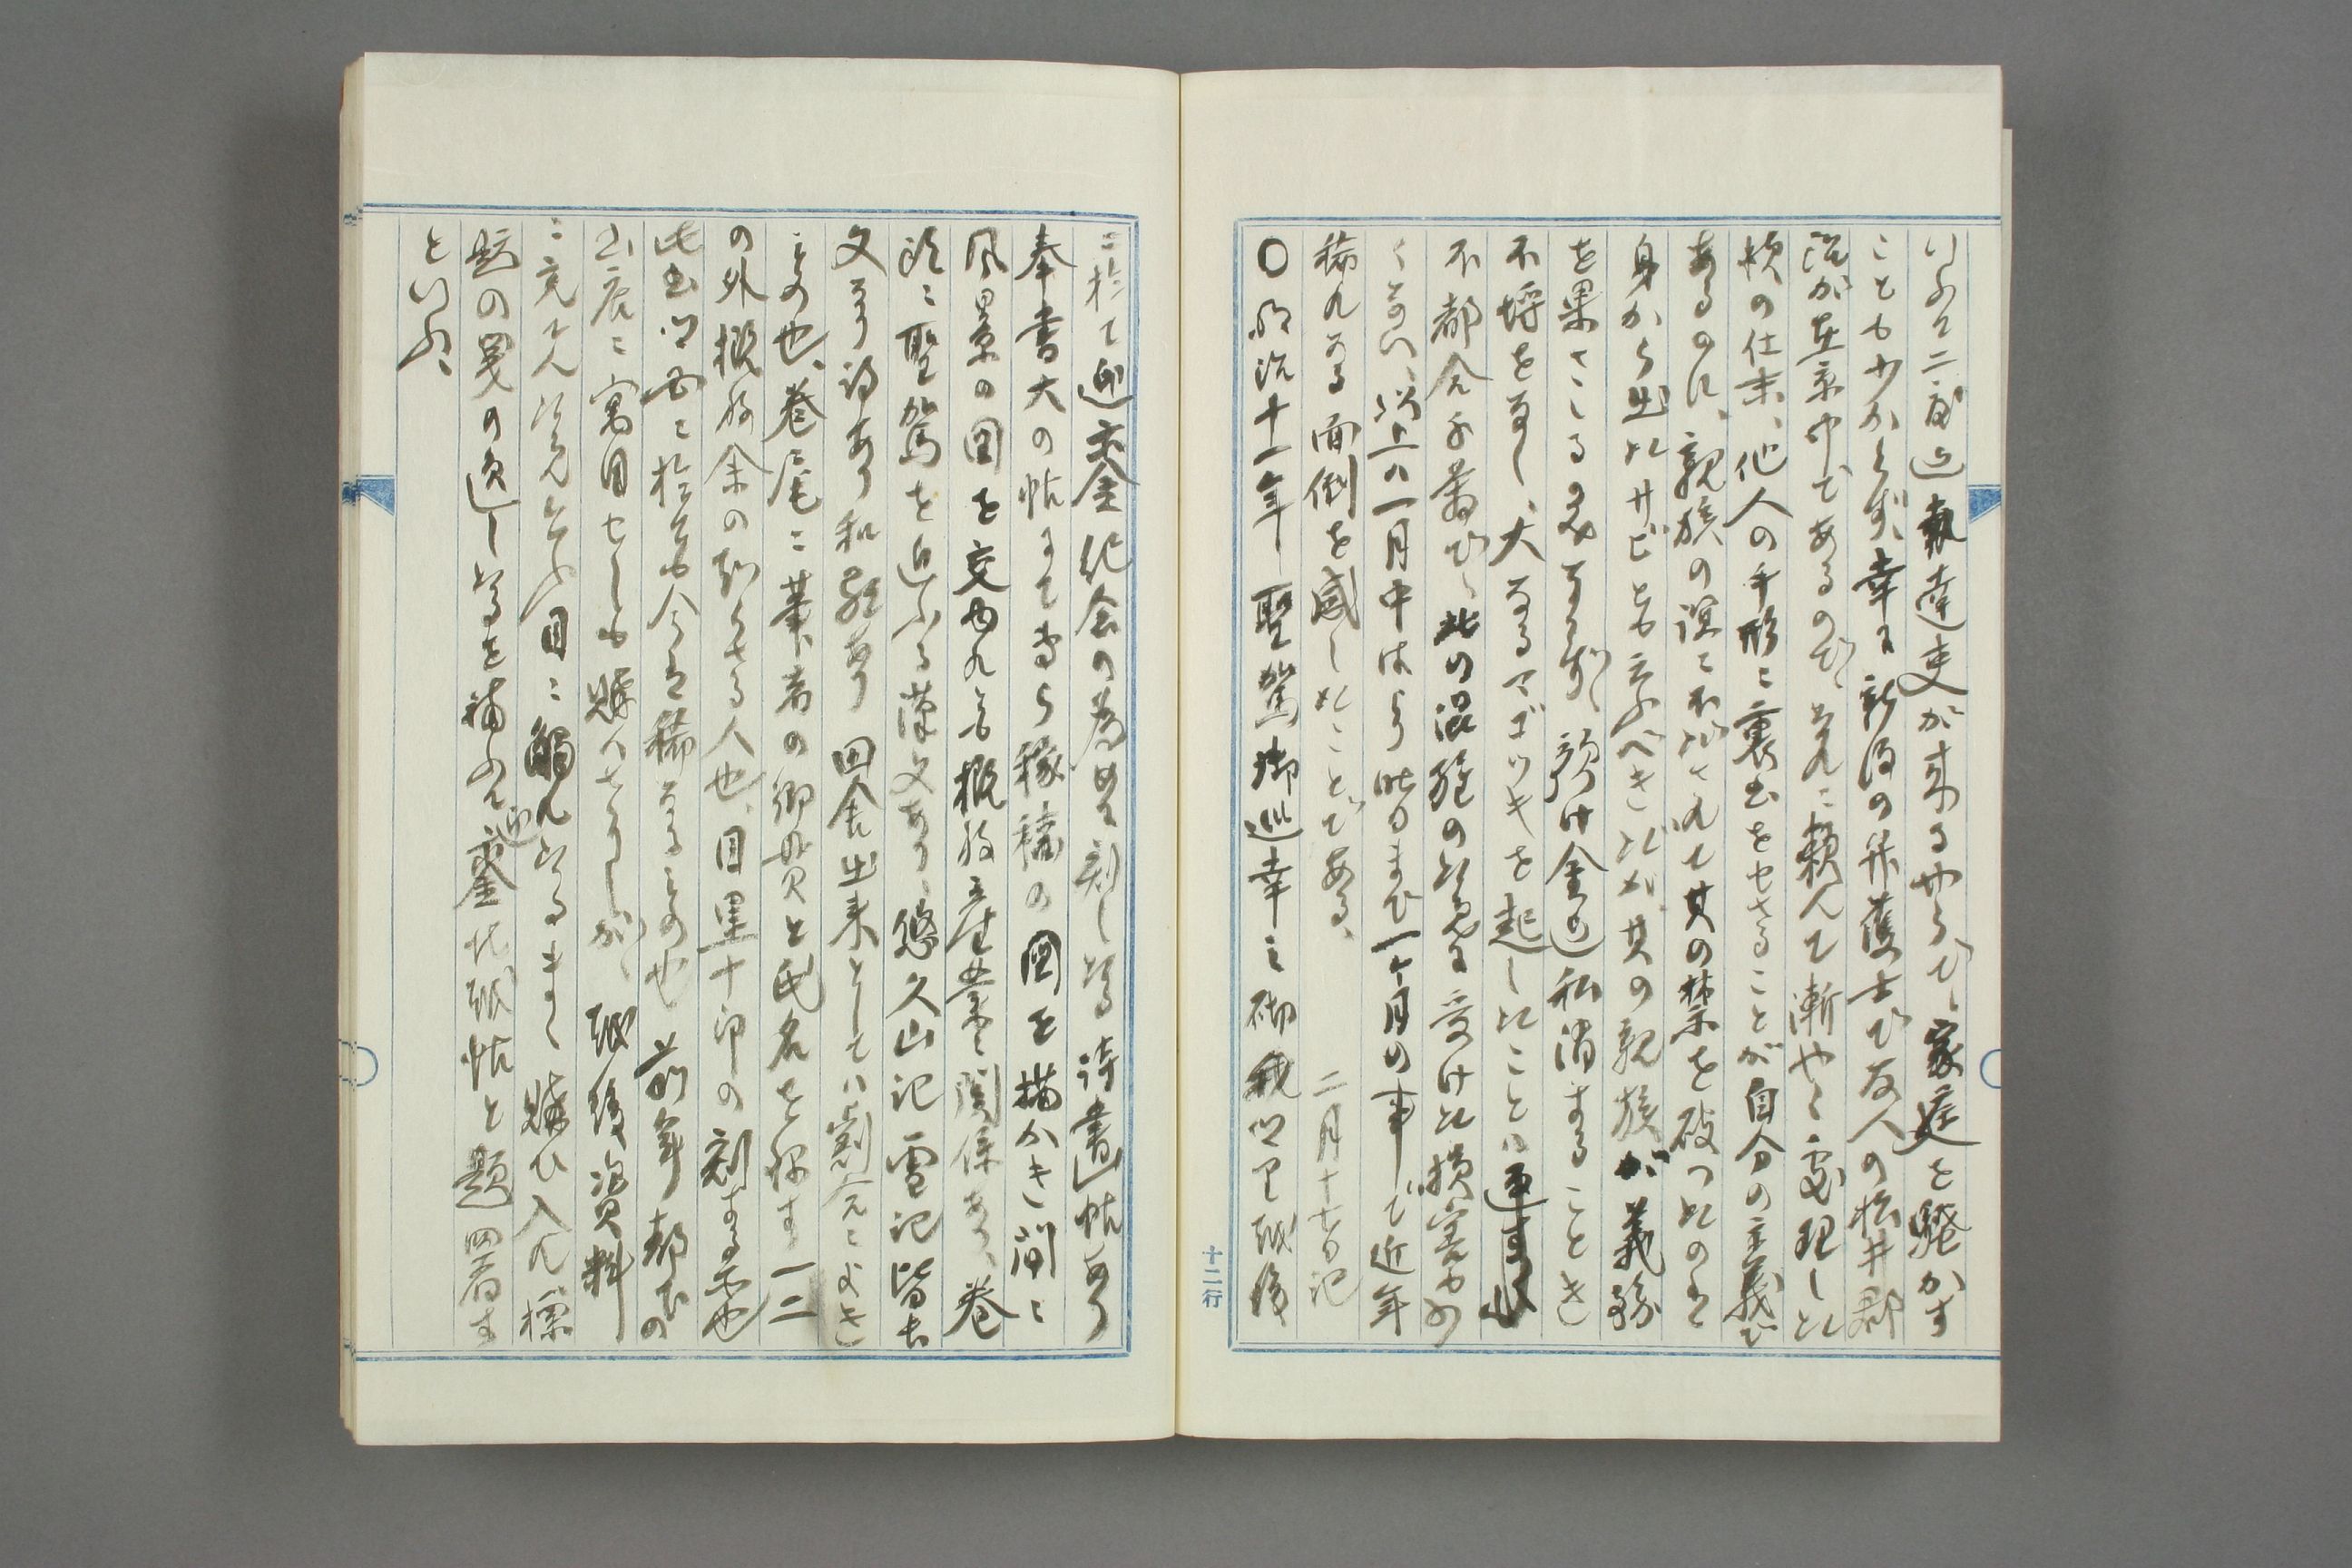 いふて二度迄執達吏が来るやらで、家庭を騒かす
ことも少からず、幸に新潟の弁護士で友人の松井郡
治が在京中であるので、それに頼んて漸やく処理した
其の仕末、他人の手形に裏書をせさることが自分の主義で
あるのに、親族の誼に なくされて其の禁を破つたのは
身から出たサビとも云ふべきだが、其の親族が義務
を果さゝるのみならず、預け金迄私消することき
不埒をなし、大なるマゴツキを起したことは
不都合千萬で、此の混雑の結果受けた損害も少
くない、以上ハ一月中はより昨日まで一ケ月の事で近年
稀れなる面倒を感したことである、 二月十七日記
〇明治十一年聖駕御巡幸之砌我
越後
ニ於て迎鑾紀念の為め刻したる詩書帖あり
奉書大の帖にて専ら稼穡の図を描かき間に
風景の図を交ゆれども概ね産業に関係あり、巻
頭に聖駕を迎ふる漢文あり、悠久山記雪記皆古
文なり詩あり和歌あり田舎出来としては割合によき
もの也、巻尾に筆者の郷貫と氏名を録す一二
の外概ね余の知らさる人也、目黒十郎の刻する処也
此書関西に於ても今は稀なるもの也前年都下の
書店に寓目せしも購ハさりしが、越後資料
に充てんと 目に觸れたるまゝ購ひ入れ標
題の 迎鑾北越帖と題署す
といふ、
十二行